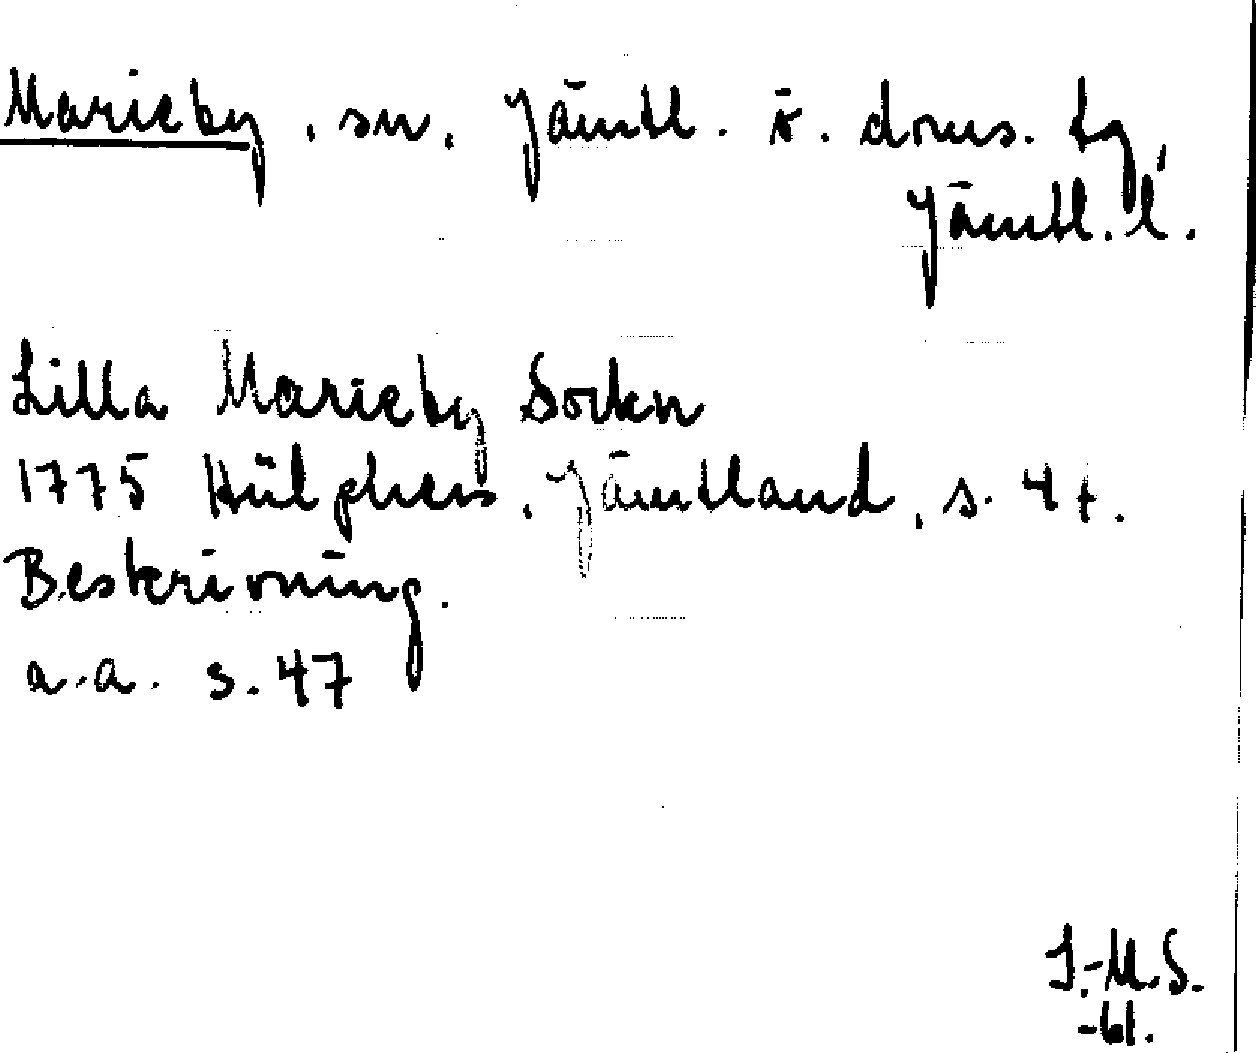 Marieby, sn, Jämtl. ö. doms. tg,
Jämtl. l.
Lilla Marieby Sockn
1775 Hülphers, Jämtland, s. 47.
Beskrivning.
a.a. s. 47
I.-M.S.
-61.